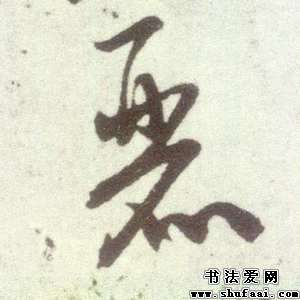 惡
书法爱网
www.shufaai.com